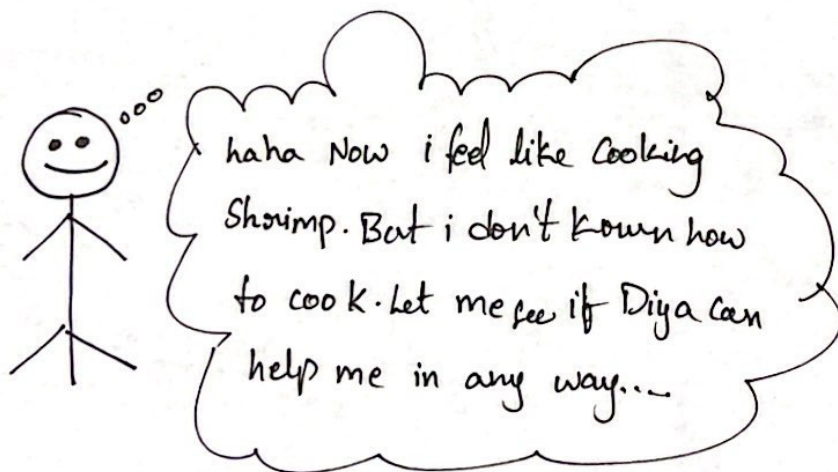 haha Now i feel like cooking
Shrimp. But i don't kown how
to cook. Let me see if Diya can
help me in any way....